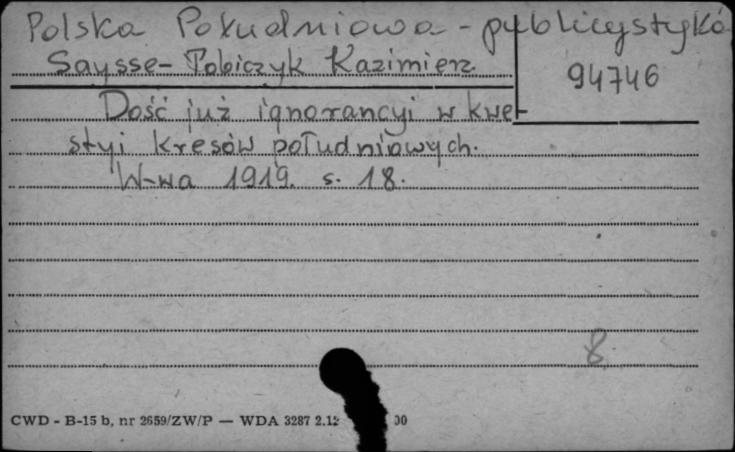 Polska Południowa - publicystyka
Saysse-Tobiczyk Kazimierz
94746
Dość już ignorancyi w kwe-
styi kresów południowych.
W-wa 1919. s. 18.
8
CWD - B-15 b, nr 2659/ZW/P — WDA 3287 2.12 00